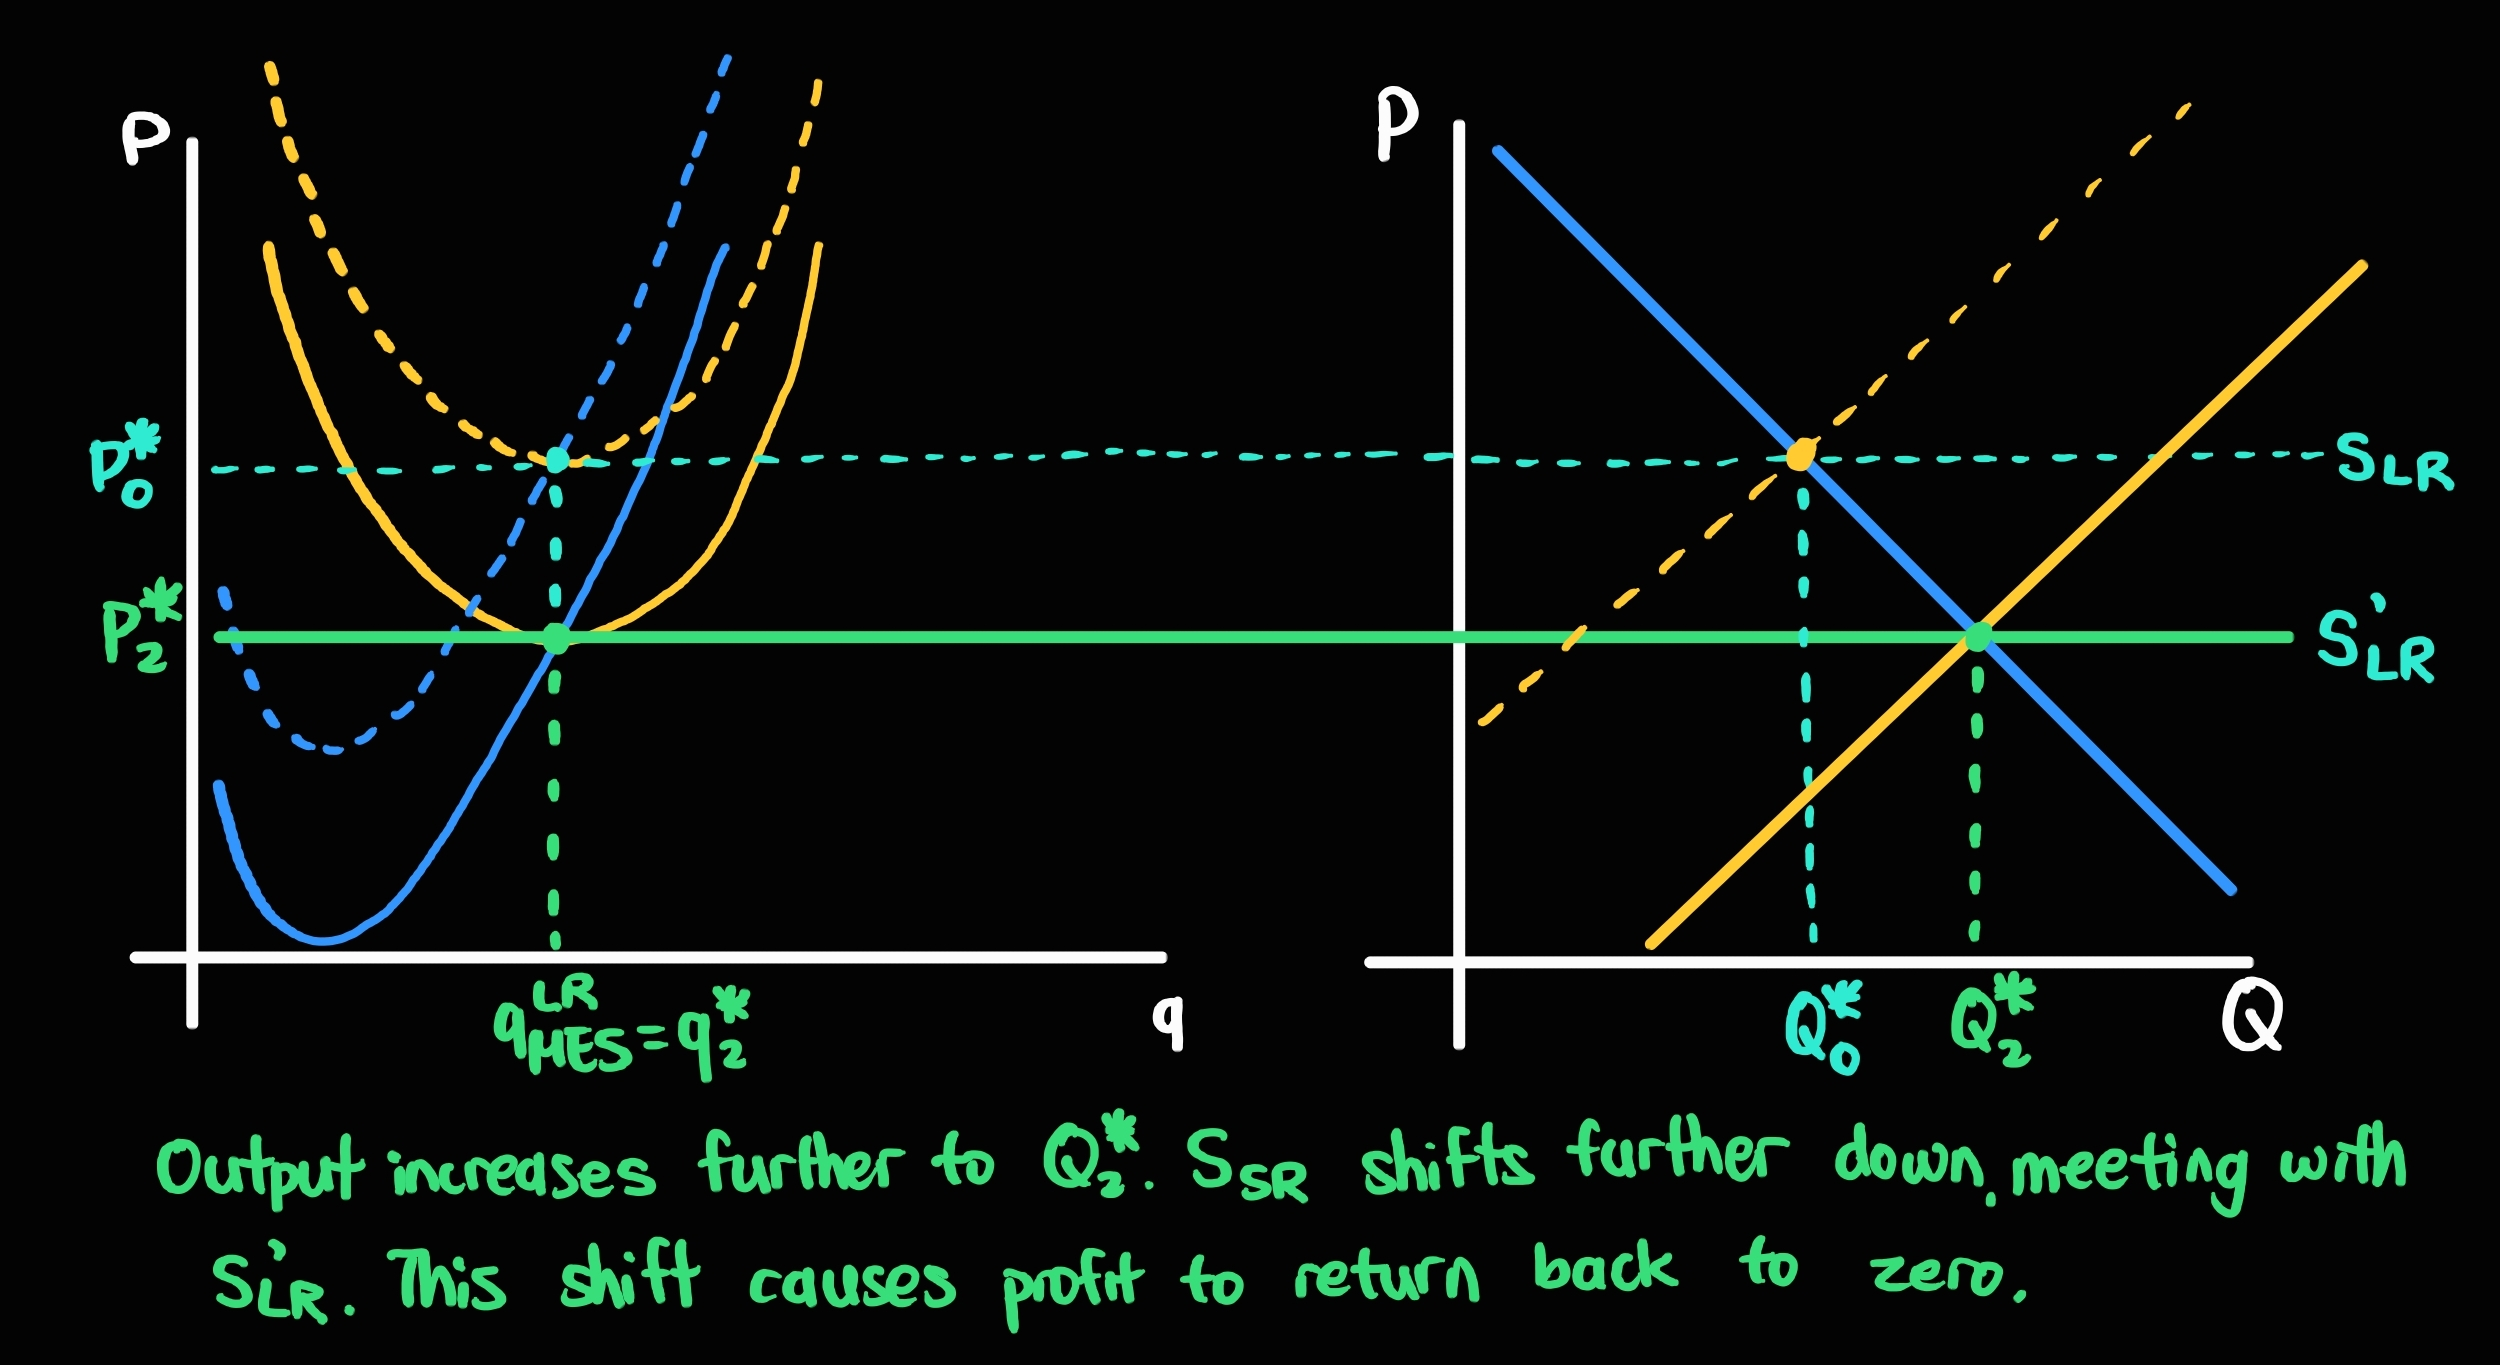 P
P
P*0
SLR
P*2
S'LR
qLRMES=q*2
q
Q*0
Q*2
Q
Output increases further to Q*2. SSR shifts further down, meeting with
S'LR. This shift causes profit to return back to zero.